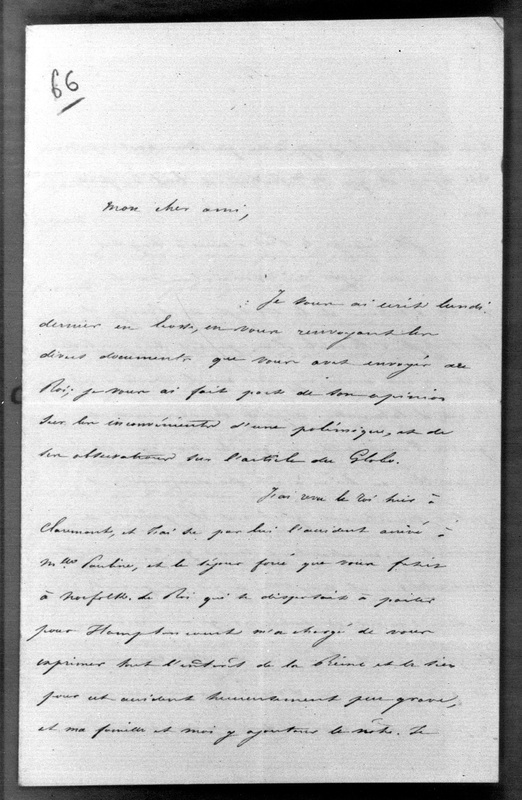 66
Mon cher ami,
Je vous ai écrit lundi
dernier en hâte, en vous renvoyant les
divers documents que vous avez envoyés au
Roi; je vous ai fait part de son opinion
sur les inconvénients d'une polémique, et de
ses observations sur l'article du Globe.
J'ai vu le Roi hier à
Claremont, et j'ai su par lui l'accident arrivé à
Mlle Pauline, et le séjour forcé que vous faites
à Norfolk. Le Roi qui se disposait à partir
pour Hampton court m'a chargé de vous
exprimer tout l'intérêt de la Reine et le sien
pour cet accident heureusement peu grave,
et ma famille et moi y ajoutons le nôtre. Le